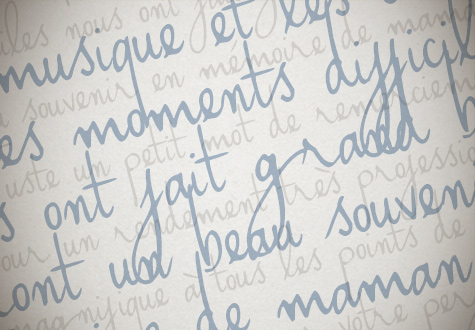 iles nous ont
musique et les
en mémoire de
souvenir
es moments difficil
uste un petit mot de remerciem
s ont fait grand
our un rendement très professio
ont un beau souven
magnifique à tous les points de
de maman
votre per